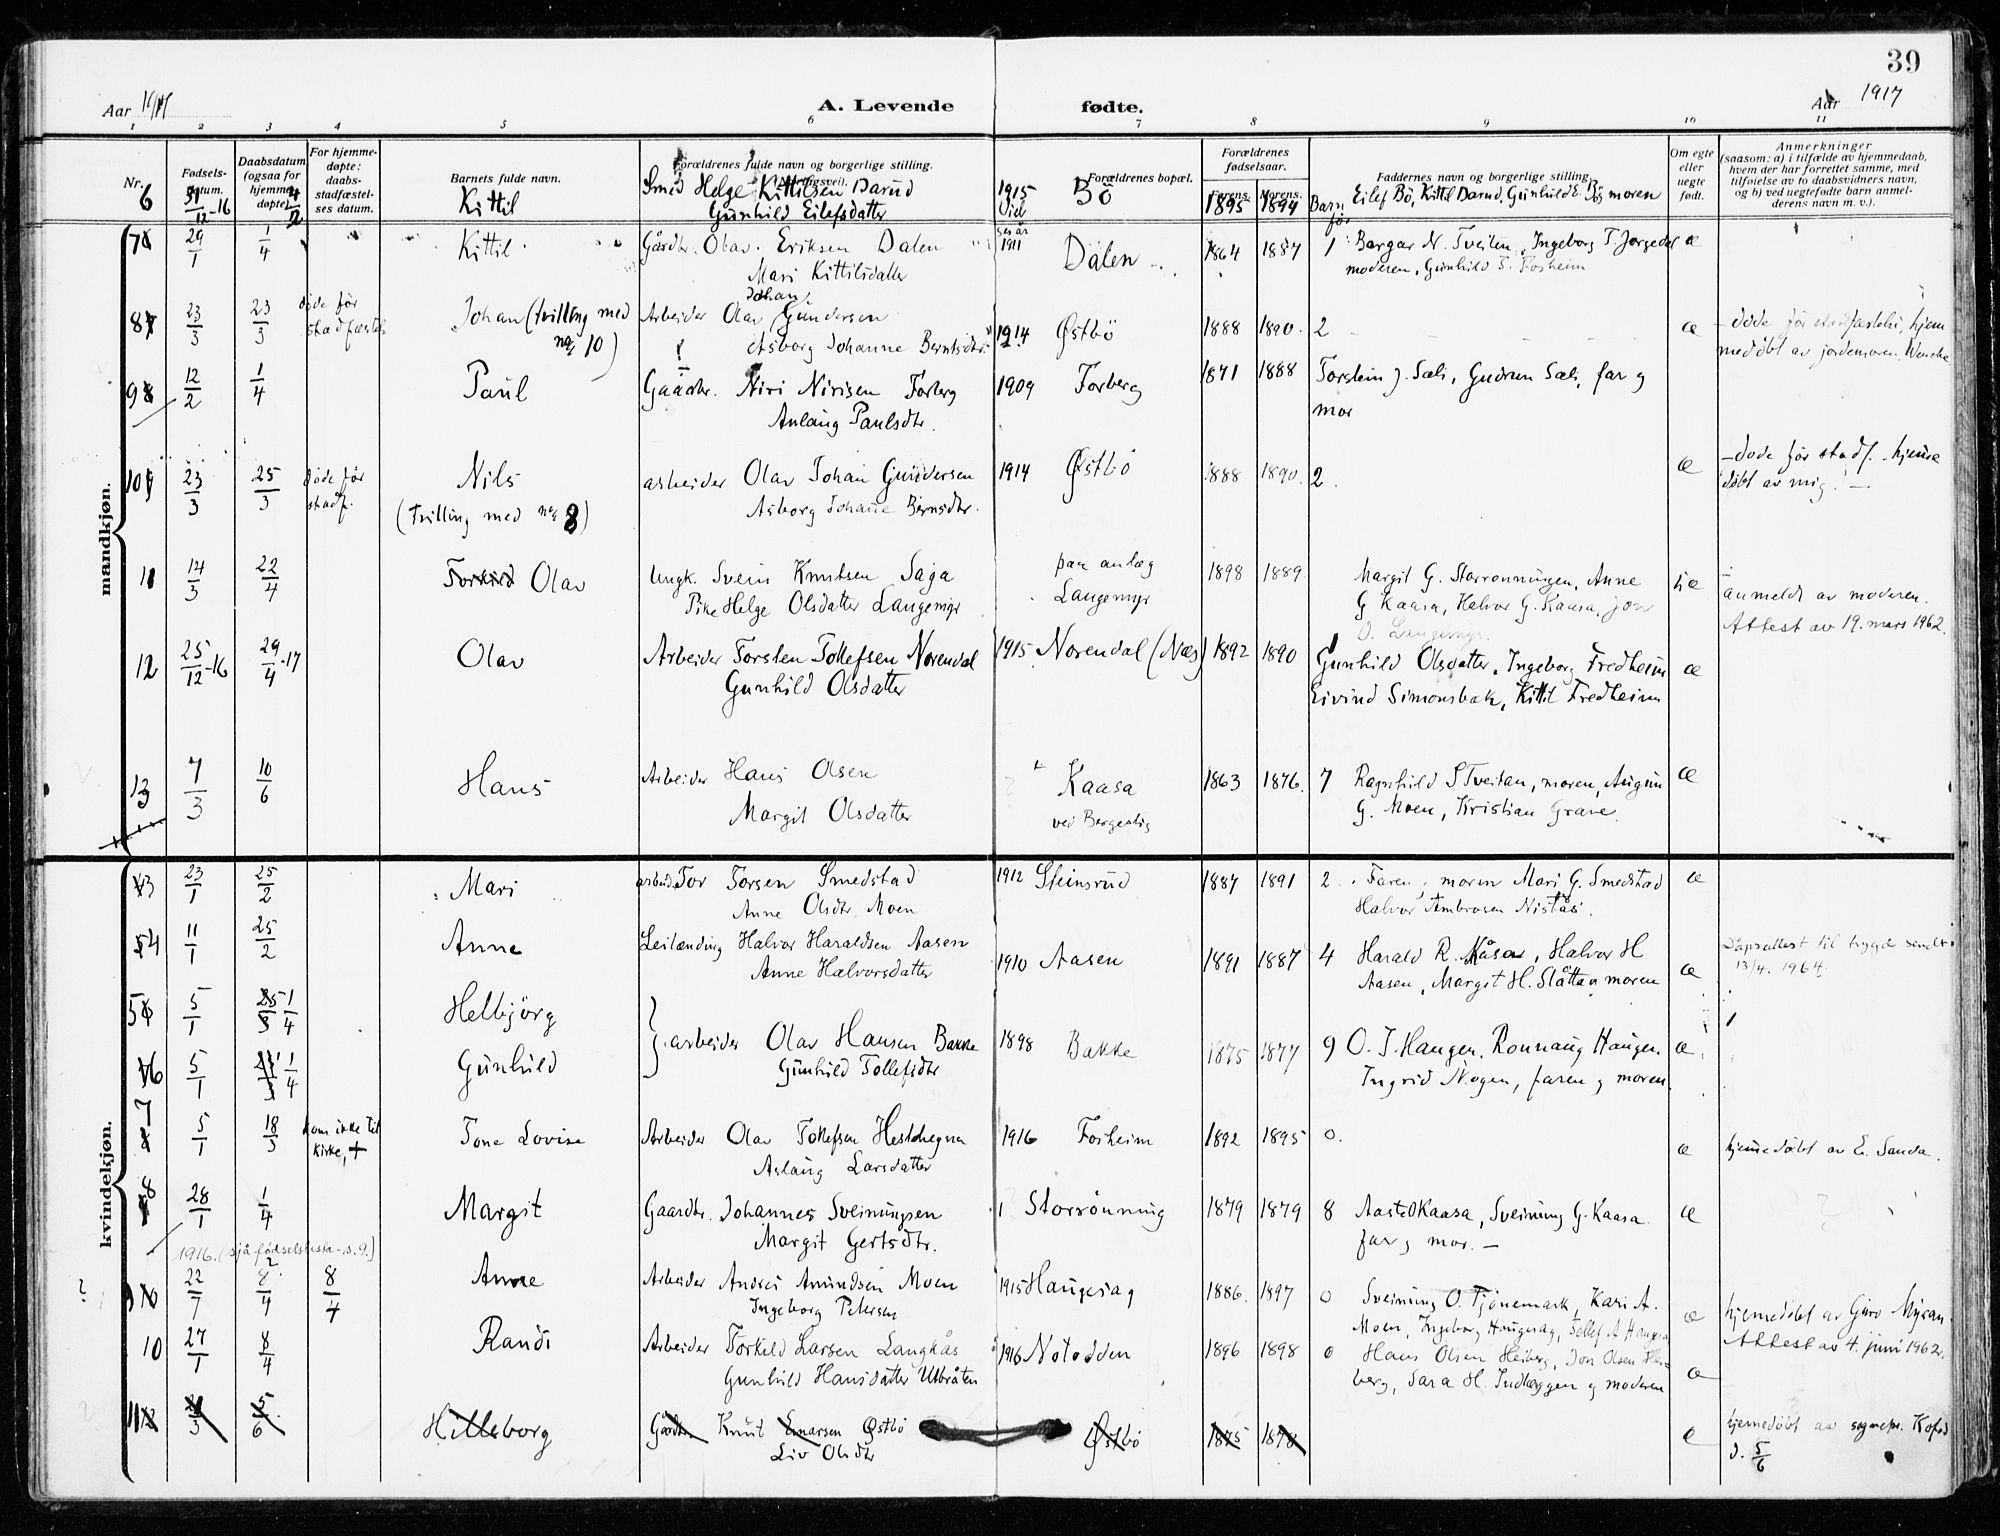 39
Aar 1917 A. Levende fødte. Aar 1917
1 2 3 4 5 6 7 8 9 10 11
Nr. Fødsels-datum. Daabsdatum (ogsaa for hjemme-døpte). For hjemme-døpte: daabs-stadfæstel-ses datum. Barnets fulde navn. Forældrenes fulde navn og borgerlige stilling. Forældrenes bopæl. Forældrenes fødselsaar. Farens. Morens. Faddernes navn og borgerlige stilling. Om egte eller uegte født. Anmerkninger (saasom: a) i tilfælde av hjemmedaab, hvem der har forrettet samme, med tilføielse av to daabsvidners navn, og b) ved uegtefødte barn anmel-derens navn m. v.).
6 31/12-16 Kittil Smed Helge Kittilsen Darud 1915 Bö 1895 1894 Eilef Bö, Kittil Darud, Gunhild E. Bö, moren
Gunhild Eilefsdatter Viet Barn før
mandkjøn.
7 29/1 1/4 Kittil Gårdbr. Olav Eriksen Dalen 1911 Dalen 1864 1887 1 Bargar N. Tveiten, Ingeborg T. Jorgedal æ
Mari Kittilsdatter moderen, Gunhild T. Forheim
Johan
8 23/3 23/3 døde før stadfæstels Johan (tvilling med no 10) Arbeider Olav Gundersen 1914 Østbö 1888 1890 2 æ - døde før stadfæstelse, hjem
Asborg Johanne Berntsdtr. medøbt av jordemoren
9 12/2 1/4 Paul Gaardbr. Niri Nirisen Forberg 1909 Forberg 1871 1888 Torstein J. Sæli, Gudrun Sæli, far og
Anlaug Paulsdtr. mor
10 23/3 25/3 døde før stadf. Nils arbeider Olav Johan Gundersen 1914 Østbö 1888 1890 2. æ - døde før stadf. hjemme
(tvilling med no 8) Asborg Johanne Berntsdtr. døbt av mig. -
11 14/3 22/4 Torkild Olav Ungk. Svein Knutsen Saga paa anlæg 1898 1889 Margit G. Storrønningen, Anne uæ
Pike Helge Olsdatter Langemyr Langemyr G Kaasa, Halvor G. Kaasa, Jon anmeldt av moderen.
O. Langemyr. Attest av 19. mars 1962.
12 25/12-16 29/4-17 Olav Arbeider Torsten Tollefsen Norendal 1915 Norendal (Næs) 1892 1890 1 Gunhild Olsdatter, Ingeborg Fredheim æ
Gunhild Olsdatter Eivind Simonsbak, Kittil Fredheim
13 7/3 10/6 Hans Arbeider Hans Olsen Kaasa 1863 1876 7 Ragnhild S Tveitan, moren, Augun æ
Margit Olsdatter G. Moen, Kristian Grave.
kvindekjøn.
3 23/1 25/2 Mari arbeid. Tor Torsen Smedstad 1912 Steinsrud 1887 1891 2 Faren, moren Mari G. Smedstad æ
Anne Olsdtr. Moen Halvor Ambrosen Niståsi.
4 11/1 25/2 Anne Leilænding Halvor Haraldsen Aasen 1910 Aasen 1891 1887 4 Harald R. Måsen, Halvor H æ Dåpsattest til trygd sendt
Anne Halvorsdatter Aasen, Margit H. Slåttan moren 13/4. 1964.
5 5/1 1/4 Helbjörg
arbeider Olav Hansen Bakke 1898 Bakke 1875 1877 9 O. J. Haugen, Ronnaug Haugen. æ
6 5/1 1/4 Gunhild Gunhild Tollefsdtr Ingrid Nogen, faren og moren.
7 5/1 18/3 Kom ikke til kirke, + Tone Lovise Arbeider Olav Tollefsen Hesthegna 1916 Forheim 1892 1895 0. æ hjemedøbt av E. Sanda.
Aslaug Larsdatter
8 28/1 1/4 Margit Gaardbr. Johannes Sveinungsen Storrönning 1879 1879 8 Aaste O Kaasa, Sveinung G. Kaasa æ
Margit Gertsdtr. far og mor. -
1916. (sjå fødselslista - s. 9.)
9 22/7 8/4 8/4 Anne Arbeider Andres Amundsen Moen 1915 Haugesag 1886 1897 0 Sveinung O. Tjönemark, Kari A. æ hjemedøbt av Guro Myran
Ingeborg Petersen Moen, Ingeborg Haugesag, Tollef A Haugesag
10 27/1 8/4 Randi Arbeider Torkild Larsen Langkås 1916 Notodden 1896 1898 0 Hans Olsen Heiberg, Jon Olsen Hei- æ Attest av 4. juni 1962.
Gunhild Hansdatter Utbråten berg, Sara H. Indlæggen og moderen
11 5/6 Hilleborg Gårdbr. Knut Einarsen Østbö Østbö 1875 1878 æ hjemedøbt av sognepr. Kofod
Liv Olsdtr d. 5/6